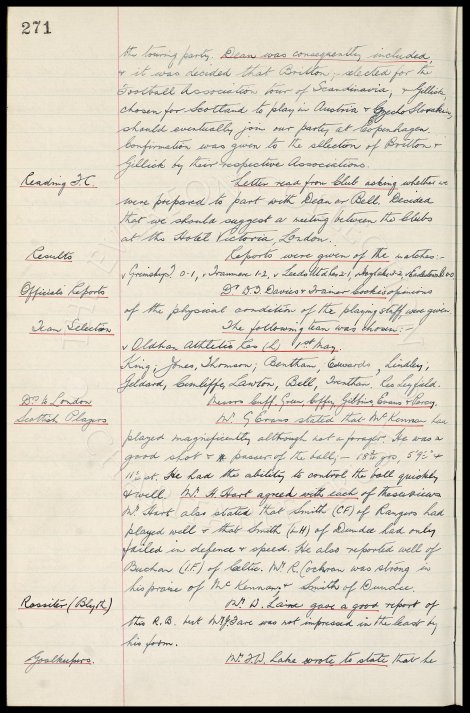 271
the touring party. Dean was consequently included,
& it was decided that Britton, selected for the
Football Association tour of Scandinavia, & Gillick
chosen for Scotland to play in Austria & Czecho Slovakia,
should eventually join our party at Copenhagen.
Confirmation was given to the selection of Britton &
Gillick by their respective Associations.
Reading F.C. Letter read from Club asking whether we
were prepared to part with Dean or Bell. Decided
that we should suggest a meeting between the Clubs
at the Hotel Victoria, London.
Results Reports were given of the matches:-
v Grimsby T 0-1, v Tranmere 1-2, v Leeds Utd Res 2-1,
Officials Reports Dr. D.F. Davies & Trainer Cooke's opinions
of the physical condition of the playing staff was given.
Team Selection The following team was chosen:-
v Oldham Athletic Res (L) 1st May.
King, Jones, Thomson; Bentham, Edwards, Lindley,
Geldard, Cunliffe, Lawton, Bell, Trentham. Res Leyfield.
Messrs Cuff, Green, Coffey, Gibbins, Evans & Percy.
Scottish Players Mr. G Evans stated that McKennan had
played magnificently although not a forager. He was a
good shot & passer of the ball; — 18½ yrs, 5'9½" &
11½ st. He had the ability to control the ball quickly
& well. Mr. H. Hart agreed with each of these views
Mr. Hart also stated that Smith (CF) of Rangers had
played well & that Smith (LH) of Dundee had only
failed in defence & speed. He also reported well of
Buchan (I.F.) of Celtic. Mr. R. Cochran was strong in
his praise of McKennan & Smith of Dundee.
Rossiter (Blyth) Mr. D. Laird gave a good report of
this R.B. but Mr J Fare was not impressed in the least by
his form.
Goalkeepers. Mr. F.W. Lake wrote to state that he